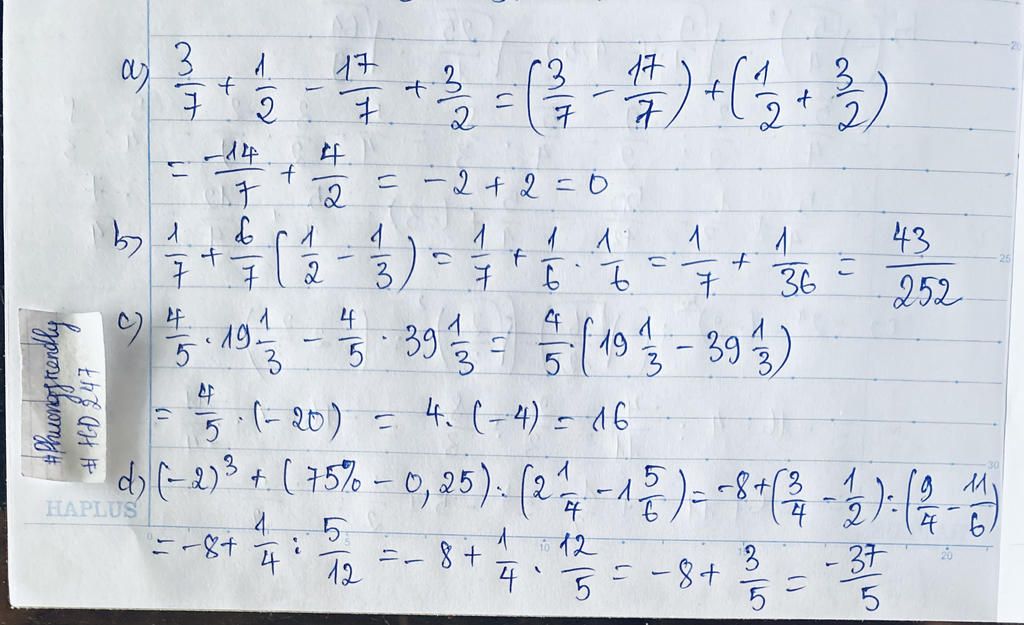 a) 3/7 + 1/2 - 17/7 + 3/2 = (3/7 - 17/7) + (1/2 + 3/2)
= -14/7 + 4/2 = -2 + 2 = 0
b) 1/7 + 6/7 (1/2 - 1/3) = 1/7 + 1/6 . 1/6 = 1/7 + 1/36 = 43/252
c) 4/5 . 19 1/3 - 4/5 . 39 1/3 = 4/5 . (19 1/3 - 39 1/3)
= 4/5 . (-20) = 4. (-4) = 16
d) (-2)^3 + (75% - 0,25) : (2 1/4 - 1 5/6) = -8 + (3/4 - 1/2) : (9/4 - 11/6)
= -8 + 1/4 : 5/12 = -8 + 1/4 . 12/5 = -8 + 3/5 = -37/5
#Phuongfrendly
# HD247
HAPLUS
20
25
30
0
5
10
15
20